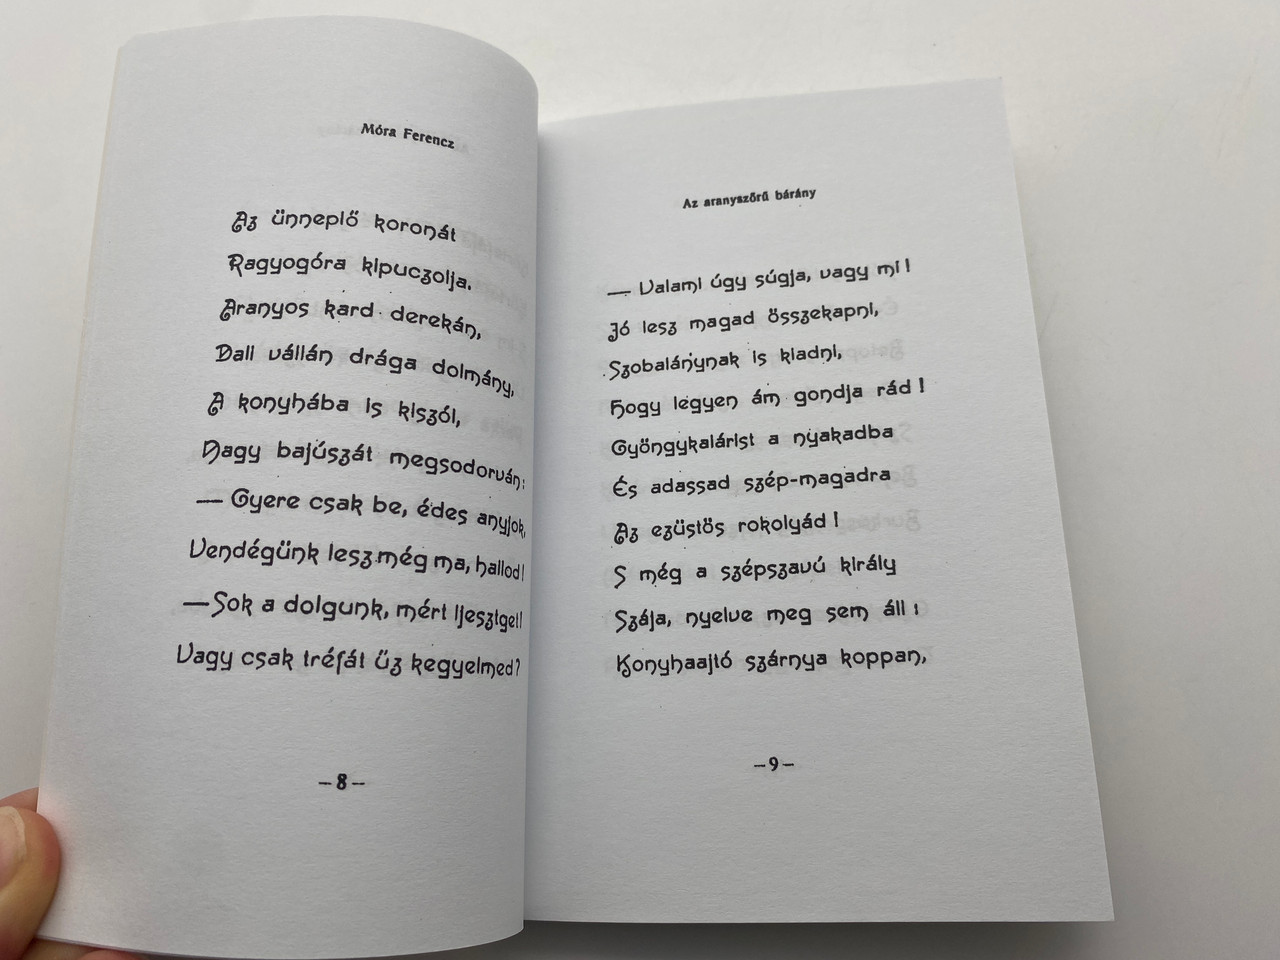 Móra Ferencz
Az ünneplő koronát
Ragyogóra kipuczolja.
Aranyos kard derekán,
Dali vállán drága dolmány,
A konyhába is kiszól,
Nagy bajúszát megsodorván:
— Gyere csak be, édes anyjok,
Vendégünk lesz még ma, hallod!
— Sok a dolgunk, mért ijesztget!
Vagy csak tréfát űz kegyelmed?
— 8 —
Az aranyszőrű bárány
— Valami úgy súgja, vagy mi!
Jó lesz magad összekapni,
Szobalánynak is kiadni,
Hogy legyen ám gondja rád!
Gyöngykalárist a nyakadba
És adassad szép-magadra
Az ezüstös rokolyád!
S még a szépszavú király
Szája, nyelve meg sem áll:
Konyhaajtó szárnya koppan,
— 9 —